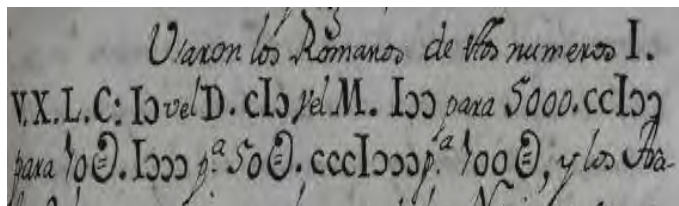 Usaron los Romanos de estos numeros I.
V.X.L.C: IↃ vel D. CIↃ vel M. IↃↃ para 5000. CCIↃↃ
para 10. IↃↃↃ p.ª 50. CCCIↃↃↃ p.ª 100, y los Ara-